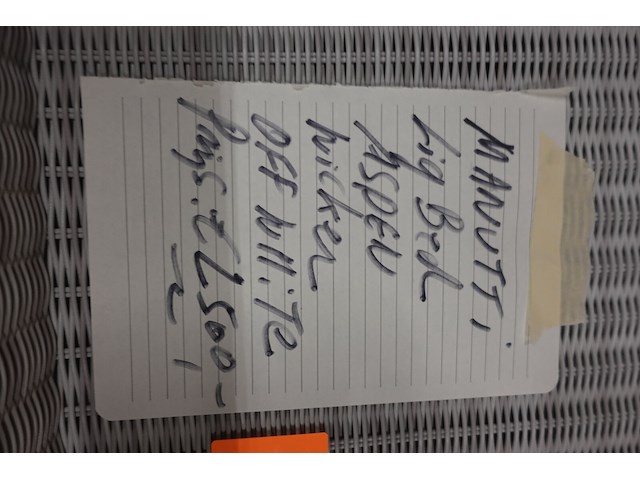 MANUTTi
Lig Bed
ASPEN
wicker
OFF WHiTe
Prijs: € 1,500-